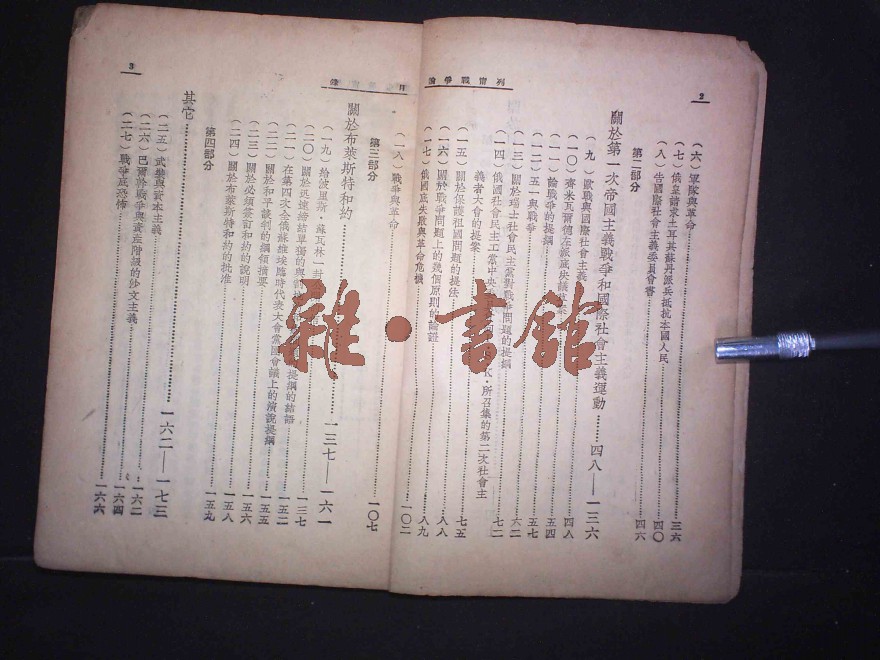 2
(六) 軍隊與革命……三六
(七) 俄皇請求土耳其蘇丹派兵抵抗本國人民
(八) 告國際社會主義委員會書……四〇
第二部分……四六
關於第一次帝國主義戰爭和國際社會主義運動……四八——一三六
(九) 歐戰與國際社會主義……四八
(一〇) 齊米瓦爾德左派底決議草案……五四
(一一) 論戰爭的提綱……五七
(一二) 五一與戰爭
(一三) 關於瑞士社會民主黨對戰爭問題的提綱……六二
(一四) 俄國社會民主工黨中央
所召集的第二次社會主
義者大會的提案……七二
(一五) 關於保護祖國問題的提法……七五
(一六) 關於戰爭問題上的幾個原則的論證……八八
(一七) 俄國底失敗與革命危機……八九
列甯戰爭論
目錄
(一八) 戰爭與革命……一〇二
第三部分……一〇七
關於布萊斯特和約……一三七——一六一
(一九) 給波里斯·蘇瓦林一封
(二〇) 關於迅速締結單獨的與
提綱的結語……一三七
(二一) 在第四次全俄蘇維埃臨時代表大會黨團會議上的演說提綱……一五二
(二二) 關於和平談判的綱領摘要……一五五
(二三) 關於必須簽訂和約的說明……一五六
(二四) 關於布萊斯特和約的批准……一五八
第四部分……一五九
其它……一六二——一七三
(二五) 武裝與資本主義……一六二
(二六) 巴爾幹戰爭與資產階級的沙文主義……一六四
(二七) 戰爭底恐怖……一六六
3
雜·書館